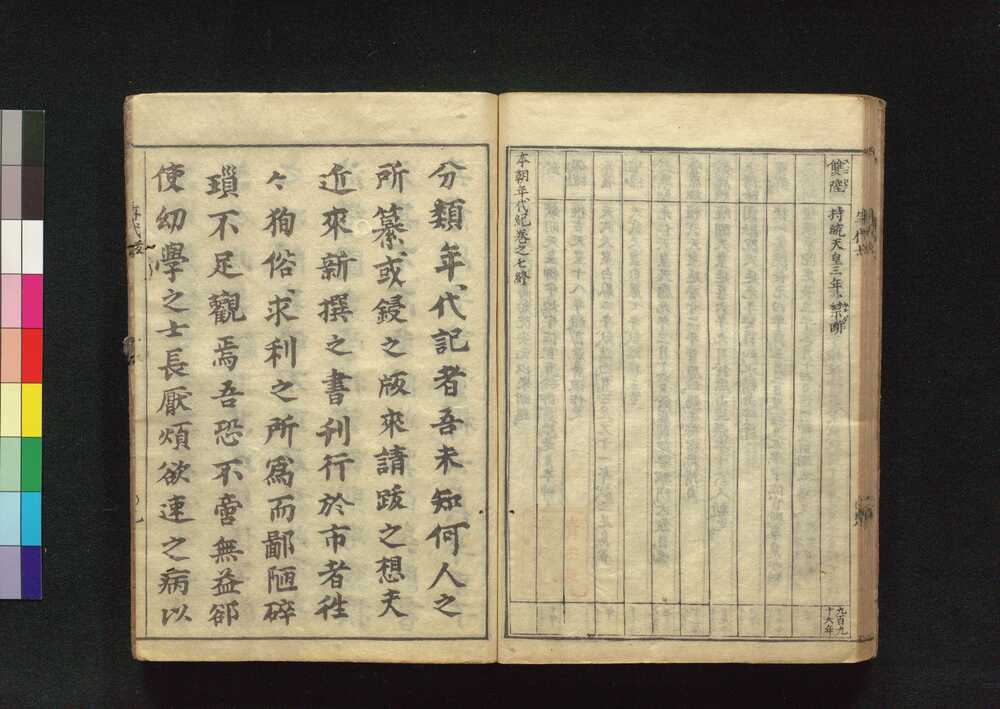 雙陸 持統天皇三年禁断
九百九
十六年
本朝年代紀卷之七終
分類年代記者吾未知何人之
所纂或鋟之版來請跋之想夫
近來新撰之書刊行於市者徃
々狥俗求利之所爲而鄙陋碎
瑣不足觀焉吾恐不啻無益郤
使幼學之士長厭煩欲速之病以